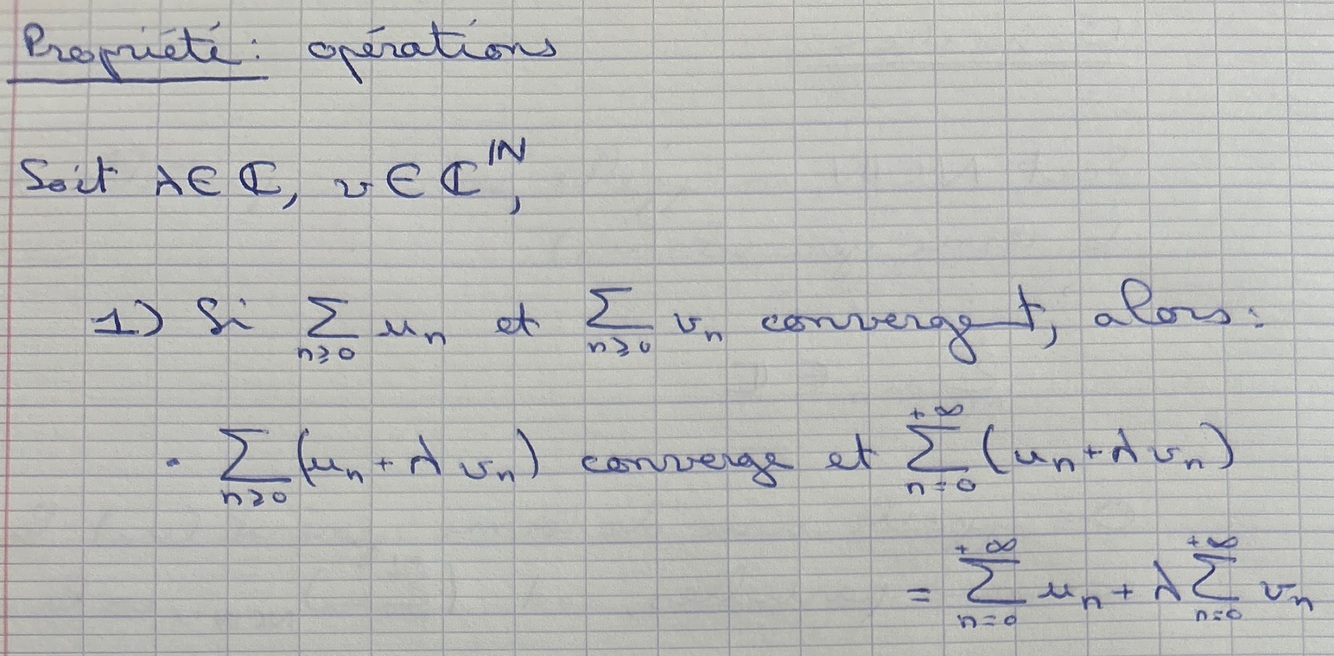 Propriété : opérations
Soit λ ∈ ℂ, v ∈ ℂ^ℕ,
1) Si ∑_{n≥0} u_n et ∑_{n≥0} v_n convergent, alors :
• ∑_{n≥0} (u_n + λ v_n) converge et ∑_{n=0}^{+∞} (u_n + λ v_n)
= ∑_{n=0}^{+∞} u_n + λ ∑_{n=0}^{+∞} v_n